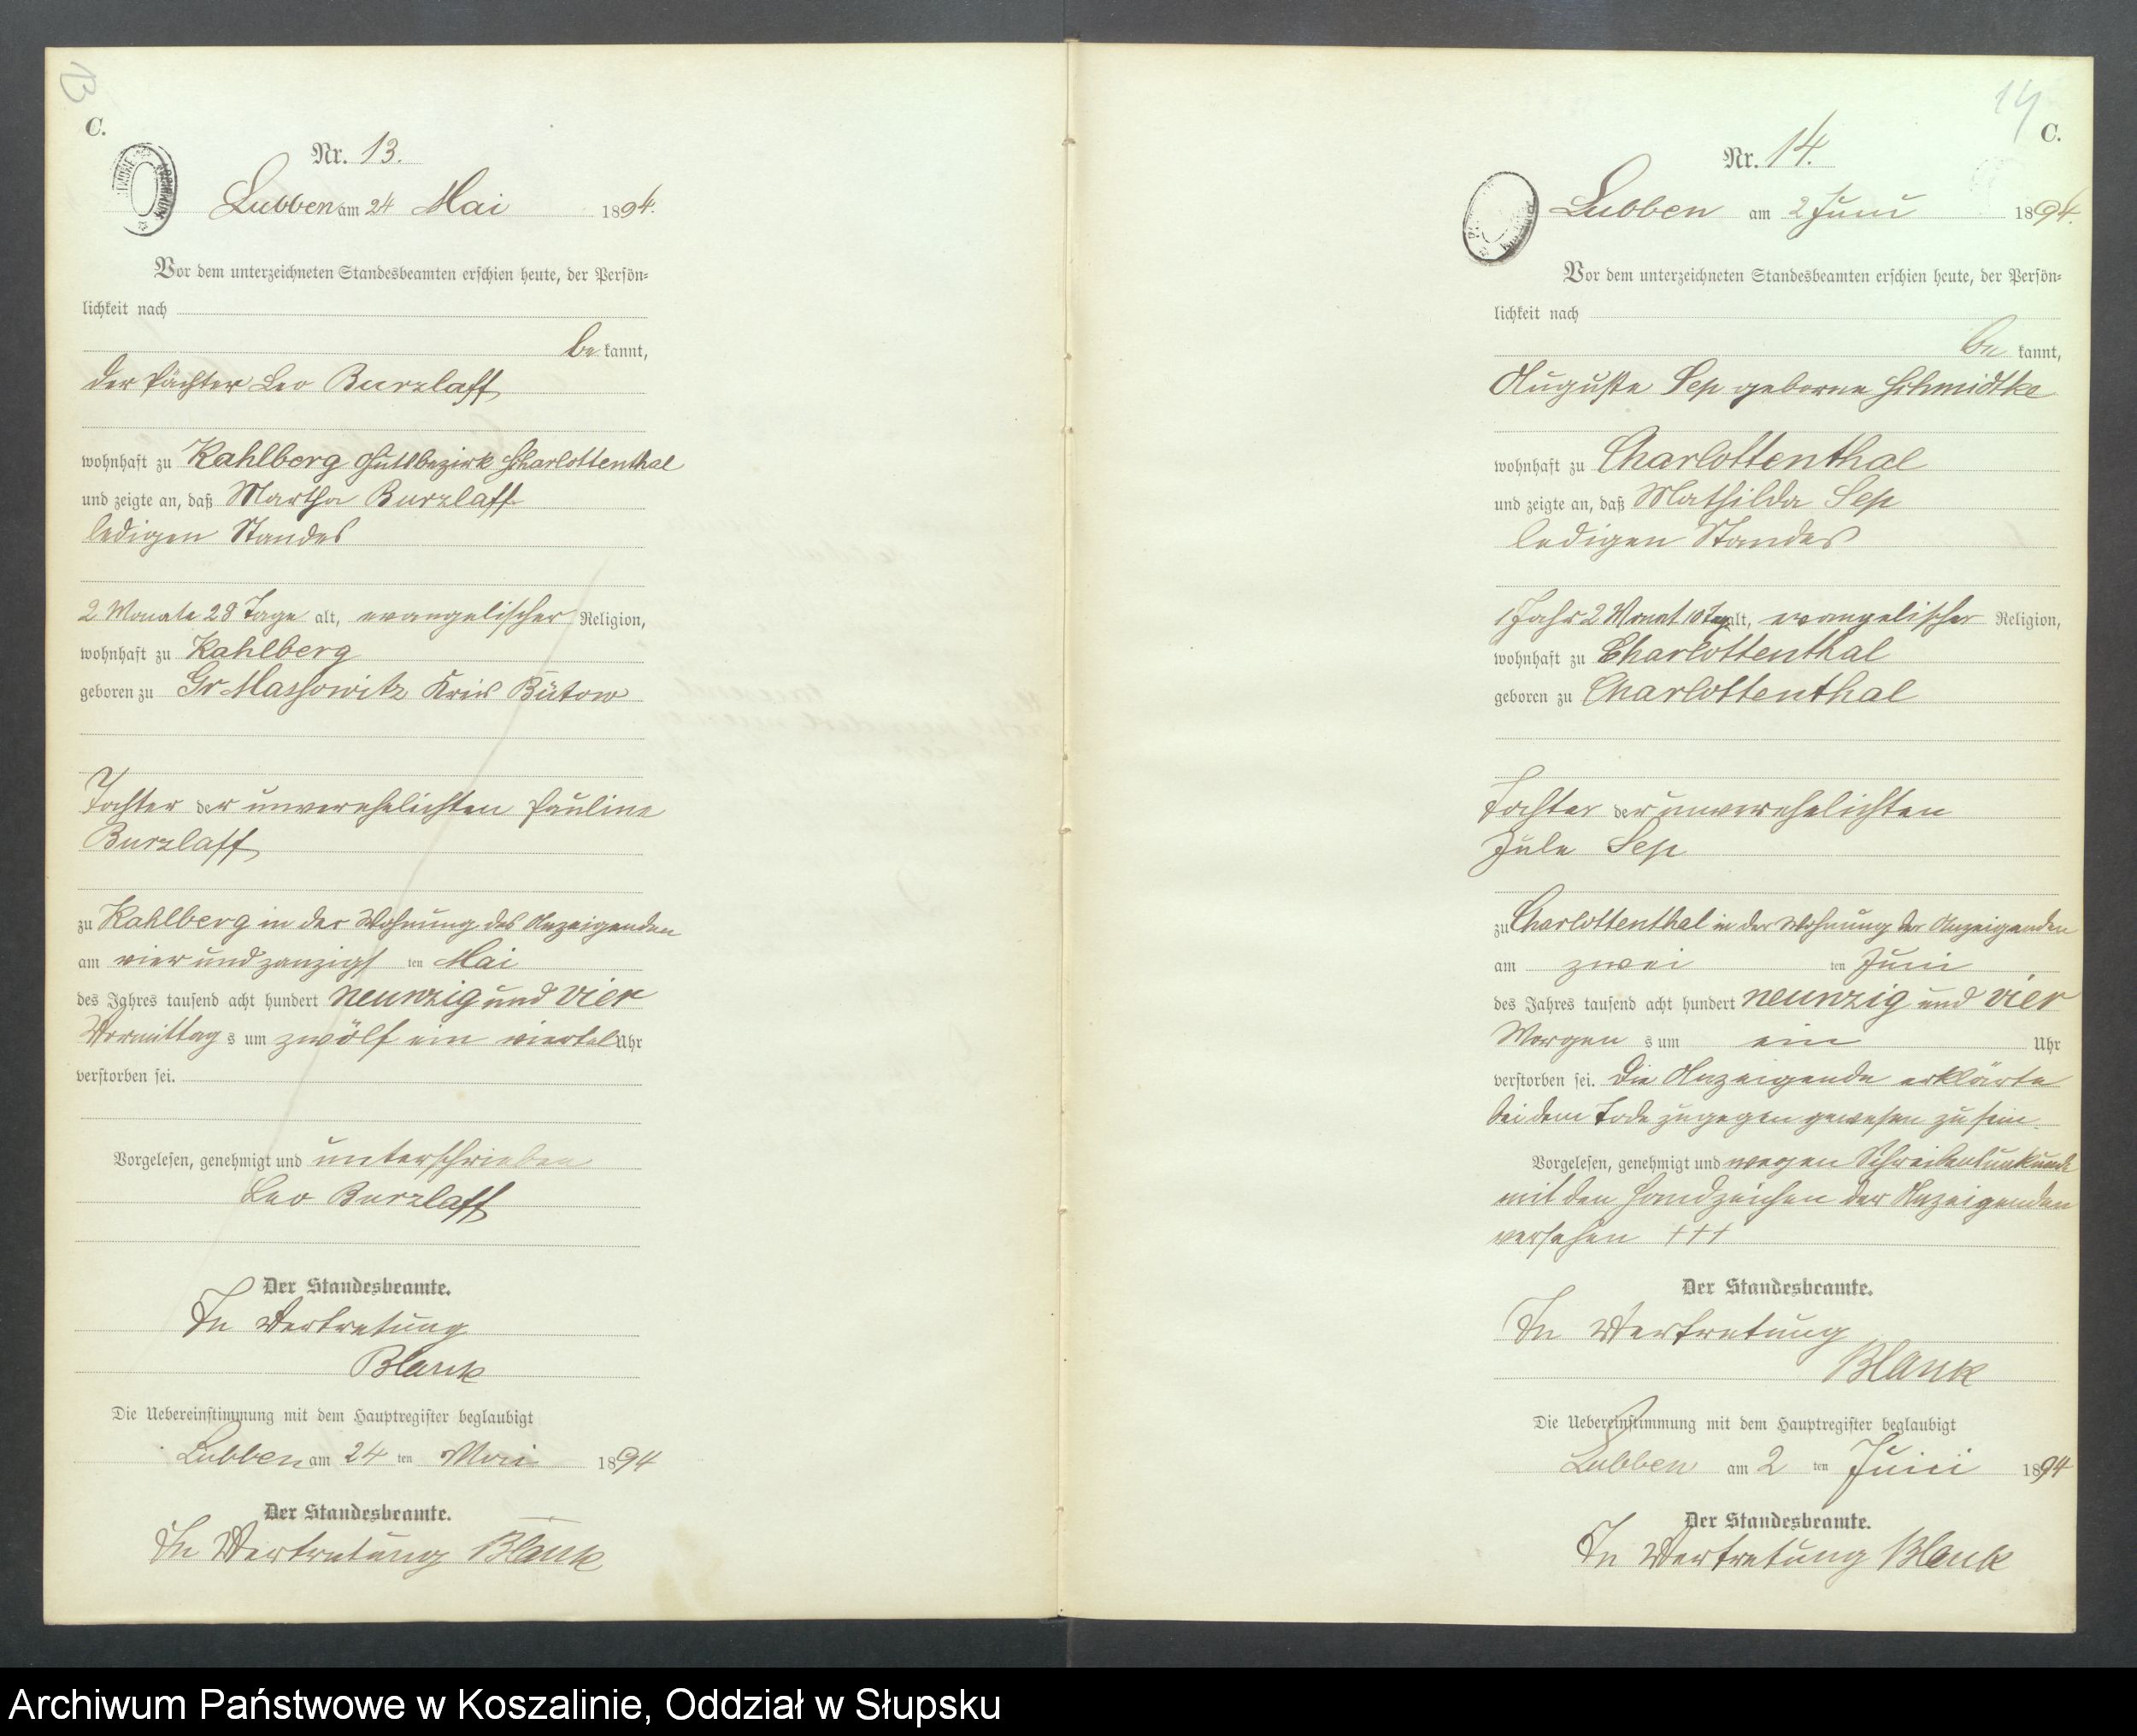 13
C.
Nr. 13.
Lubben am 24 Mai 1894.
Vor dem unterzeichneten Standesbeamten erschien heute, der Persön-
lichkeit nach
be kannt,
der Pächter Leo Burzlaff
wohnhaft zu Kahlberg Gutsbezirk Charlottenthal
und zeigte an, daß Martha Burzlaff
ledigen Standes
2 Monate 28 Tage alt, evangelischer Religion,
wohnhaft zu Kahlberg
geboren zu Gr Massowitz Kreis Bütow
Tochter der unverehelichten Pauline
Burzlaff
zu Kahlberg in der Wohnung des Anzeigenden
am vier und zanzigs ten Mai
des Jahres tausend acht hundert neunzig und vier
Vormittag s um zwölf ein viertel Uhr
verstorben sei.
Vorgelesen, genehmigt und unterschrieben
Leo Burzlaff
Der Standesbeamte.
In Vertretung
Blank
Die Uebereinstimmung mit dem Hauptregister beglaubigt
Lubben am 24 ten Mai 1894
Der Standesbeamte.
In Vertretung Blank
14
C.
Nr. 14.
Lubben am 2 Juni 1894.
Vor dem unterzeichneten Standesbeamten erschien heute, der Persön-
lichkeit nach
be kannt,
Auguste Sep geborne Schmidtke
wohnhaft zu Charlottenthal
und zeigte an, daß Mathilde Sep
ledigen Standes
1 Jahr 2 Monat 10 Tag alt, evangelischer Religion,
wohnhaft zu Charlottenthal
geboren zu Charlottenthal
Tochter der unverehelichten
Jule Sep
zu Charlottenthal in der Wohnung der Anzeigenden
am zwei ten Juni
des Jahres tausend acht hundert neunzig und vier
Morgen s um ein Uhr
verstorben sei. Die Anzeigende erklärte
bei dem Tode zugegen gewesen zu sein.
Vorgelesen, genehmigt und wegen Schreibensunkunde
mit den Handzeichen der Anzeigenden
versehen +++
Der Standesbeamte.
In Vertretung
Blank
Die Uebereinstimmung mit dem Hauptregister beglaubigt
Lubben am 2 ten Juni 1894
Der Standesbeamte.
In Vertretung Blank
Archiwum Państwowe w Koszalinie, Oddział w Słupsku